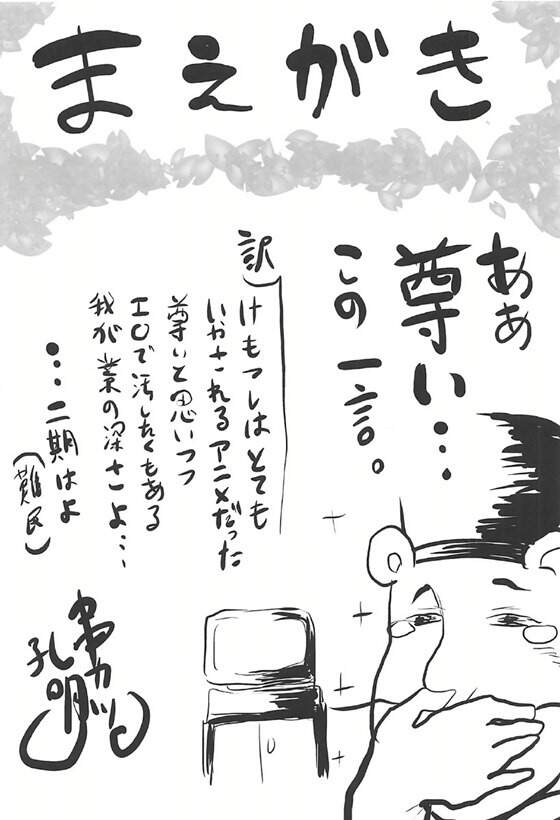 まえがき
ああ
尊い…
この一言。
訳)けもフレはとても
いやされるアニメだった
尊いと思いつつ
エロで汚したくもある
我が業の深さよ…
…二期はよ
(難民)
串カツ
孔明